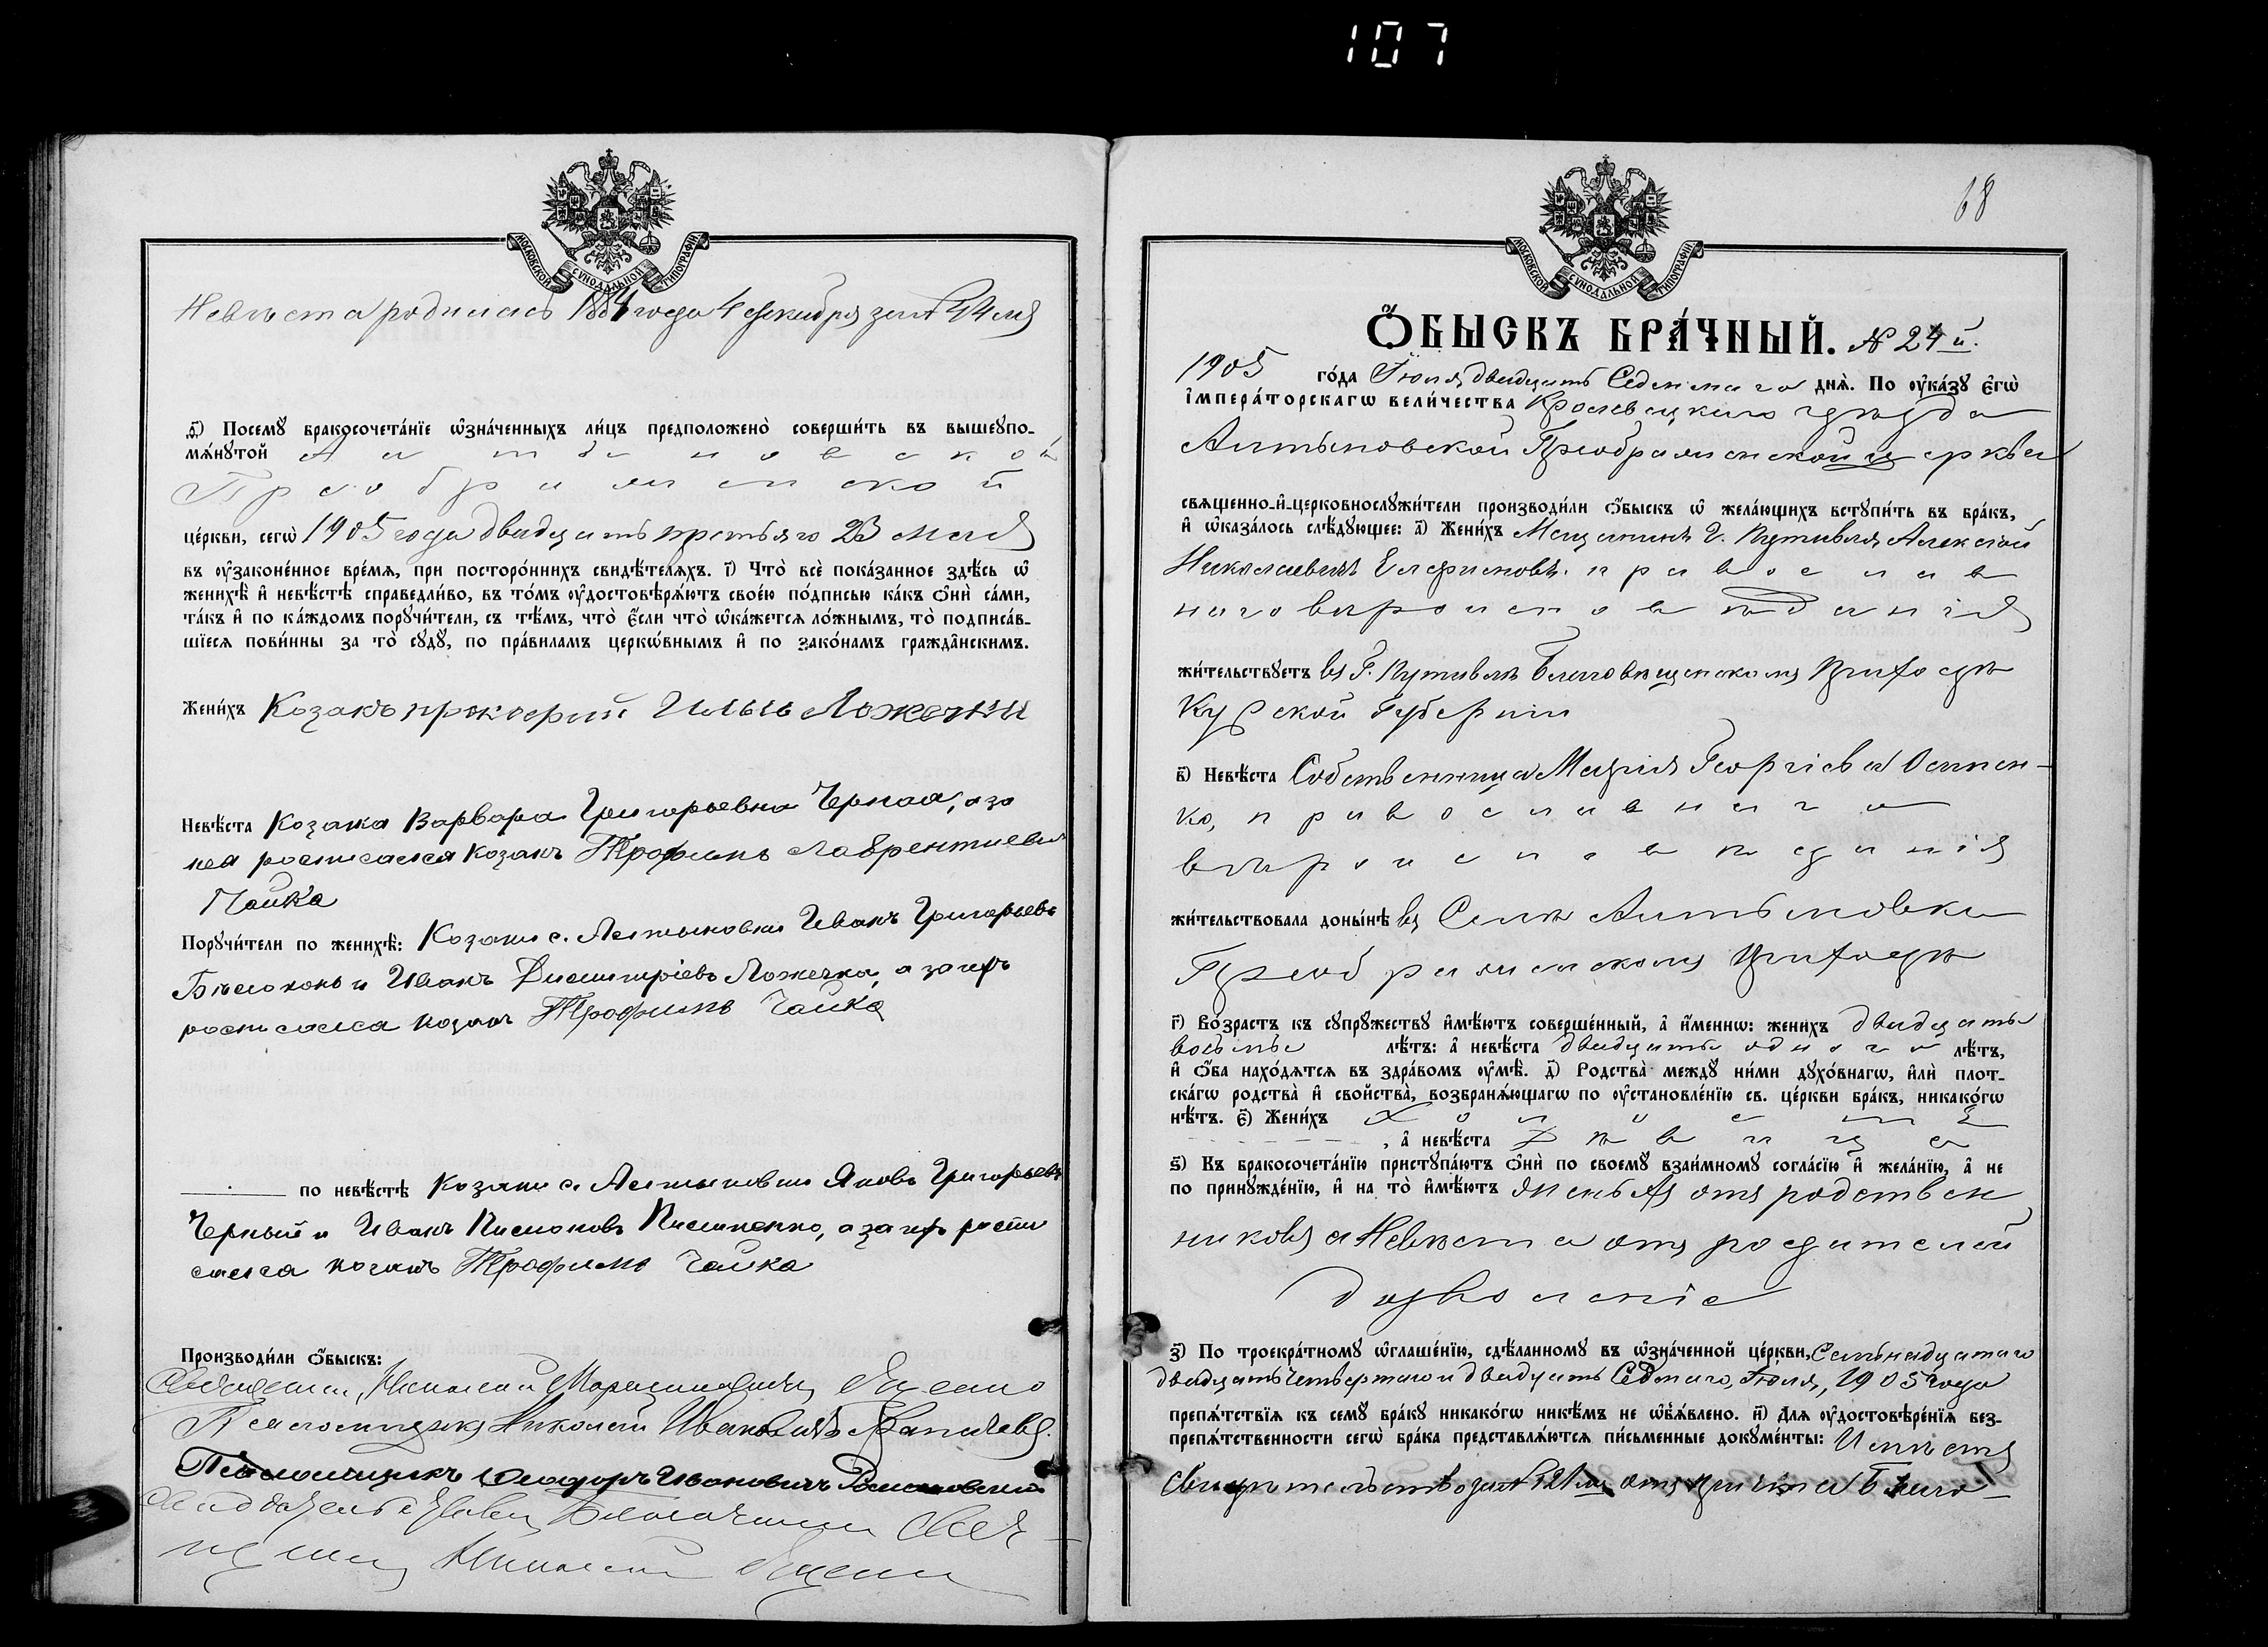 107
МОСКОВСКОЙ СУНОДАЛЬНОЙ ТИПОГРАФІИ
Невѣста родилась 1884 года 4 декабря за № 44мъ
ѳ҃) Посемꙋ̀ бракосочета́нїе ѡ҆зна́ченныхъ ли́цъ предположено̀ соверши́ть въ вышеꙋпо-
мѧ́нꙋтой Алтыновской
Преображенской
це́ркви, сегѡ̀ 1905 года двадцать третьяго 23 мая
въ ᲂу҆зако́не́нное вре́мѧ, при посторо́ннихъ свидѣ́телѧхъ. і҃) Что̀ всѐ пока́занное здѣ́сь ѡ҆
женихѣ̀ и҆ невѣ́стѣ справедли́во, въ то́мъ ᲂу҆достовѣрѧ́ютъ свое́ю по́дписью ка́къ ѻ҆нѝ са́ми,
та́къ и҆ по ка́ждомъ порꙋчи́тели, съ тѣ́мъ, что̀ є҆́сли что̀ ѡ҆ка́жется ло́жнымъ, то̀ подписа́в-
шїеся пови́нны за то̀ сꙋдꙋ̀, по пра́виламъ церкѡ́внымъ и҆ по зако́намъ гражда̑нскимъ.
Жени́хъ Козакъ Прокофий Ильич Ложечка
Невѣ́ста Козачка Варвара Григорьевна Черная, а за
нея росписался козакъ Трофимъ Лаврентиевич
Чайка
Порꙋчи́тели по женихѣ̀: Козаки с. Алтыновки Иванъ Григорьевъ
Бѣлоконь и Иванъ Димитріевъ Ложечка, а за ихъ
росписался козакъ Трофимъ Чайка
по невѣ́стѣ Козаки с. Алтыновки Яковъ Григорьевъ
Черный и Иванъ, а за ихъ роспи
сался козакъ Трофимъ Чайка
Производи́ли ѻ҆́быскъ:
Священникъ Николай
Псаломщикъ Николай Ивановичъ
Псаломщикъ Ѳеодоръ Ивановичъ
Николай
68
МОСКОВСКОЙ СУНОДАЛЬНОЙ ТИПОГРАФІИ
Ѻ҆́БЫСКЪ БРА́ЧНЫЙ. № 24й.
1905 го́да Іюля двадцать Седьмаго днѧ̀. По ᲂу҆ка́зꙋ є҆гѡ̀
і҆мпера́торскагѡ вели́чества Кролевецкаго уѣзда
Алтыновской Преображенской церкви
свѧщенно-и҆-церковнослꙋжи́тели производи́ли ѻ҆́быскъ ѡ҆ жела́ющихъ встꙋпи́ть въ бра́къ,
и҆ ѡ҆каза́лось слѣ́дꙋющее: а҃) Жени́хъ Мещанинъ Г. Путивля Алексѣй
Николаевичъ православ
наго вѣроисповѣданія
жи́тельствꙋетъ въ Г. Путивлѣ Благовѣщенскомъ приходѣ
Курской Губерніи
в҃) Невѣ́ста Собственница Марія Георгіева
ко, православнаго
вѣроисповѣданія
жи́тельствовала доны́нѣ въ Селѣ Алтыновкѣ
Преображенскомъ приходѣ
г҃) Во́зрастъ къ сꙋпрꙋ́жествꙋ и҆мѣ́ютъ соверше́нный, а҆ и҆́меннѡ: жени́хъ двадцать
восемь лѣ́тъ: а҆ невѣ́ста двадцать одного лѣ́тъ,
и҆ ѻ҆́ба нахо́дѧтся въ здра́вомъ ᲂу҆мѣ̀. д҃) Родства̀ междꙋ̀ ни́ми дꙋхо́внагѡ, и҆лѝ плот-
ска́гѡ родства̀ и҆ сво́йства, возбранѧ́ющагѡ по ᲂу҆становле́нїю св. це́ркви бра́къ, никако́гѡ
нѣ́тъ. є҃) Жени́хъ Холостъ
, а҆ невѣ́ста Дѣвица
ѕ҃) Къ бракосочета́нїю пристꙋпа́ютъ ѻ҆нѝ по своемꙋ̀ взаи́мномꙋ согла́сїю и҆ жела́нїю, а҆ не
по принꙋжде́нїю, и҆ на то̀ и҆мѣ́ютъ женихъ отъ родствен
никовъ а Невѣста отъ родителей
дозволеніе
з҃) По троекра́тномꙋ ѡ҆глаше́нїю, сдѣ́ланномꙋ въ ѡ҆зна́ченной це́ркви, Семнадцатаго
двадцать четвертаго и двадцать Седмаго, Іюля, 1905 года
препѧ́тствїѧ къ семꙋ̀ бра́кꙋ никако́гѡ никѣ́мъ не ѡ҆б̾ѧ́влено. и҃) Длѧ ᲂу҆достовѣре́нїѧ без-
препѧ́тственности сегѡ̀ бра́ка представлѧ́ются пи́сьменные докꙋме́нты: Имѣетъ
Свидѣтельство за № 121мъ отъ причта Благо-